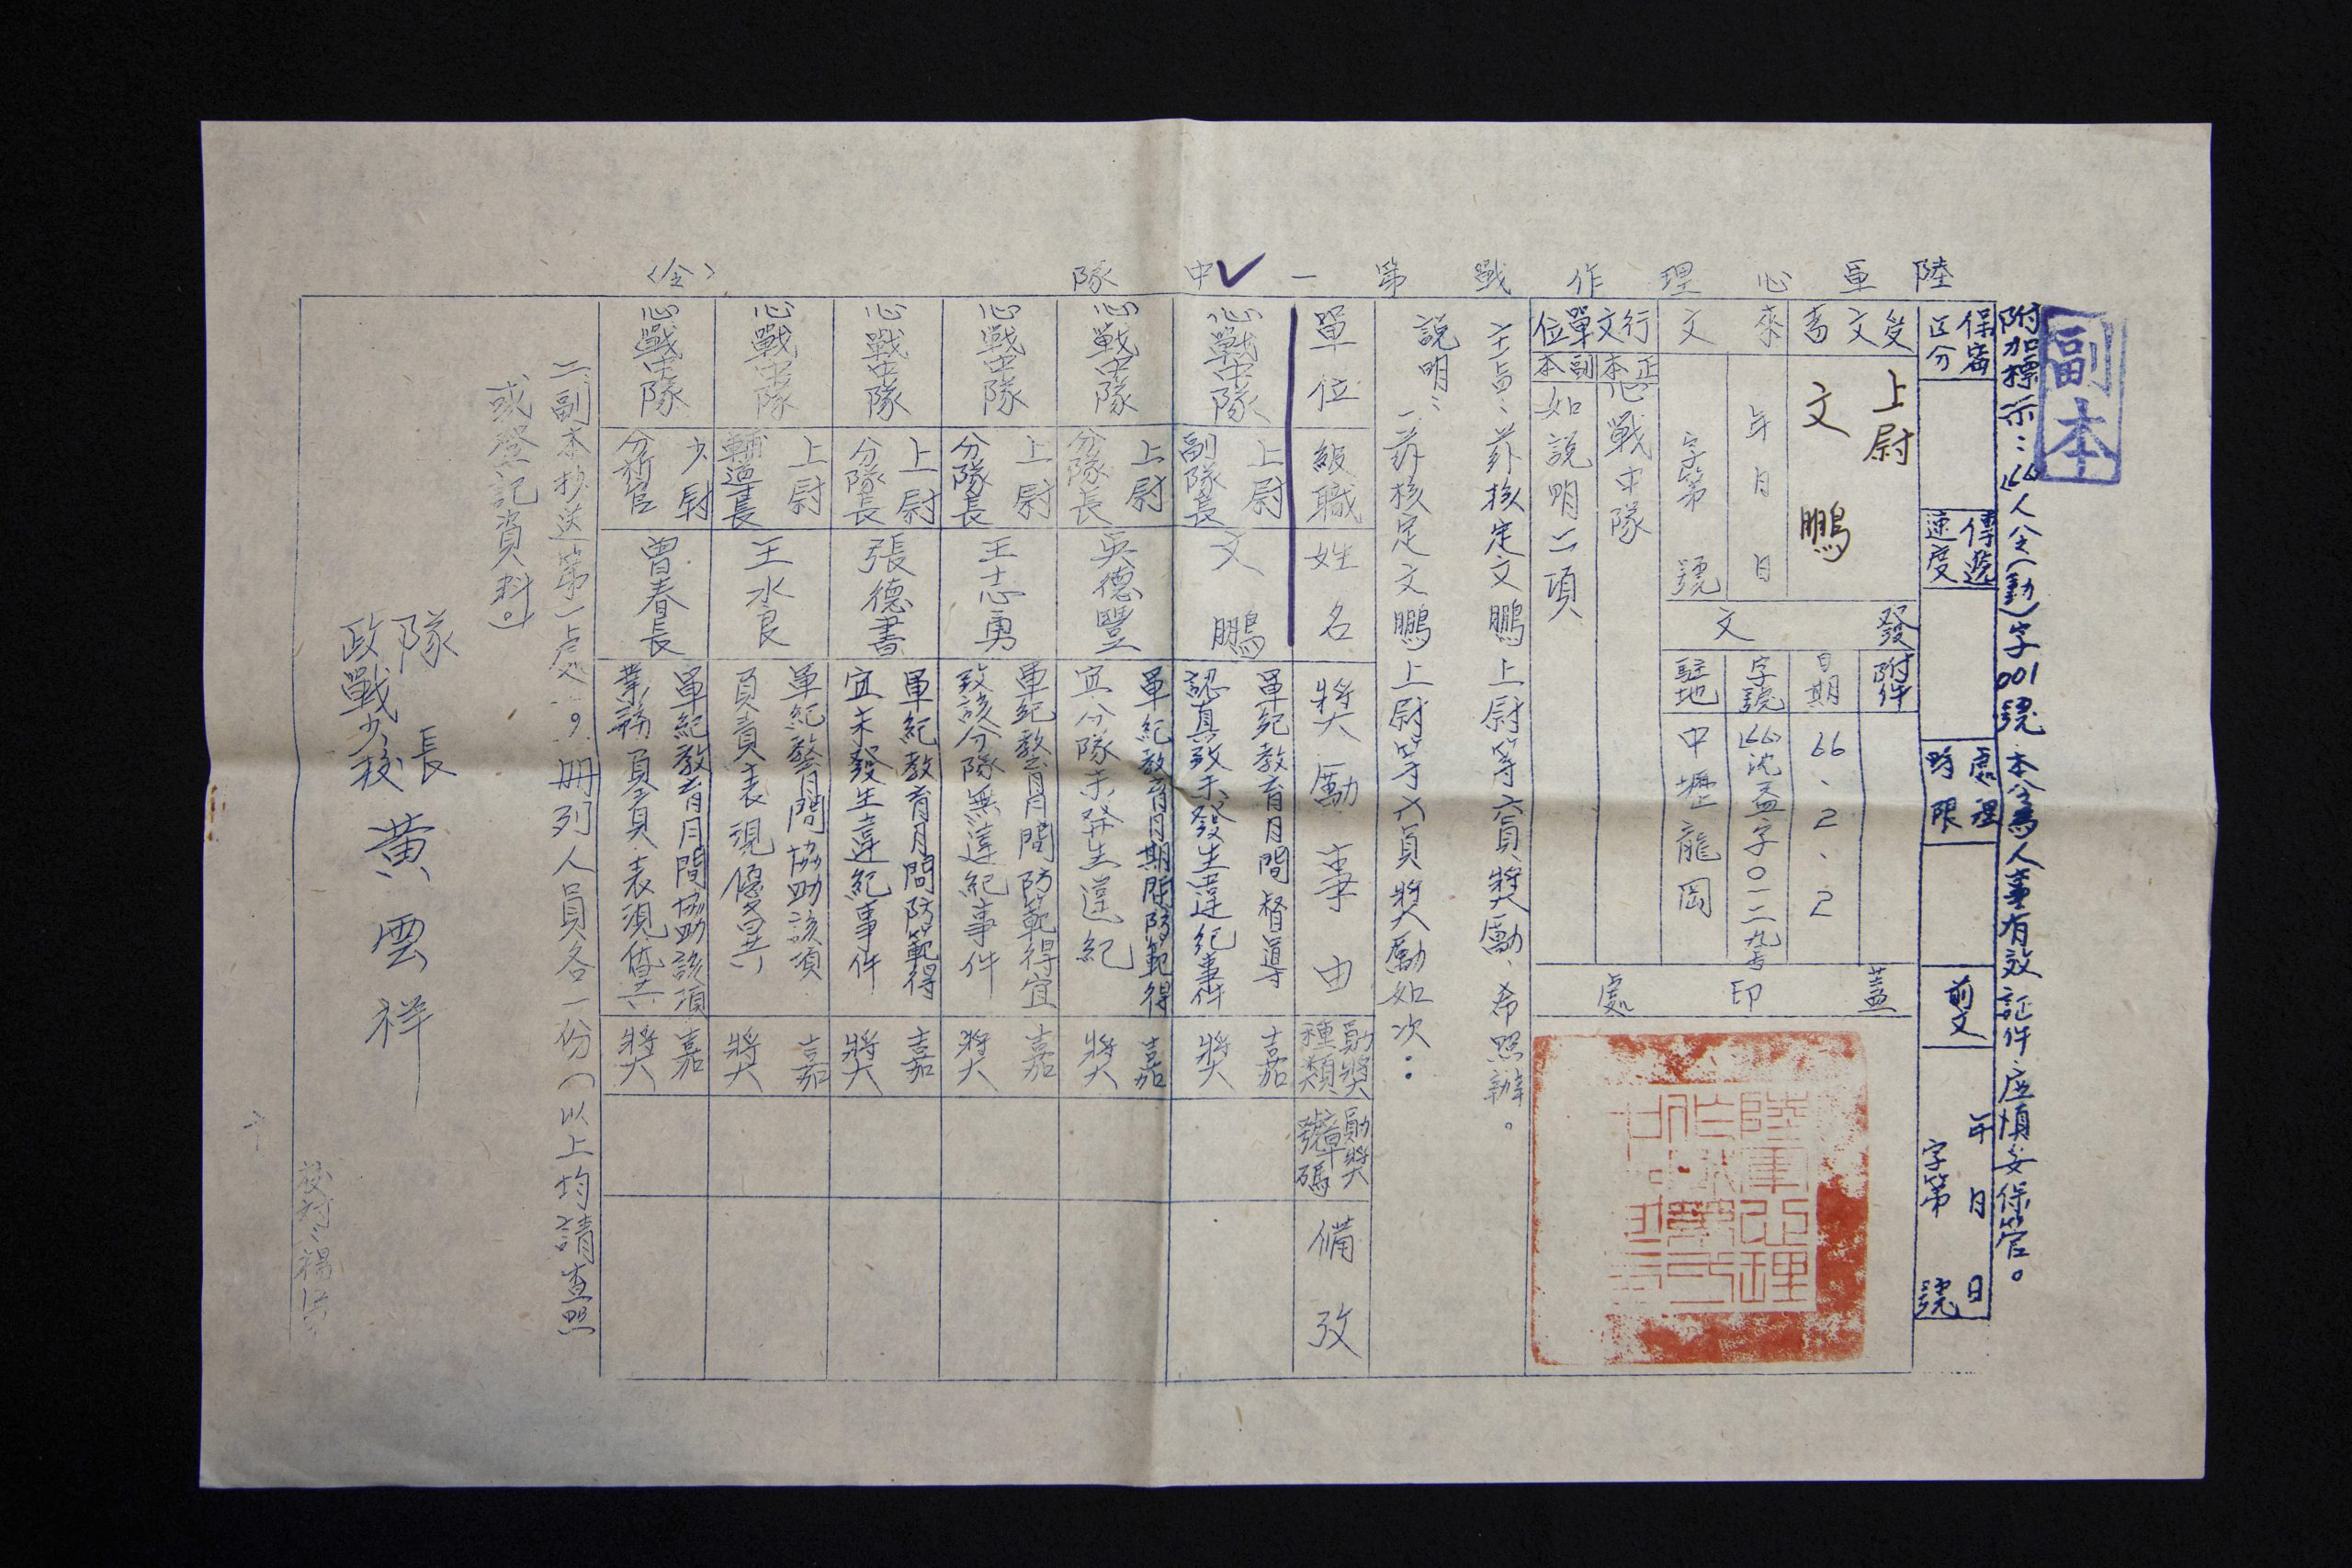 副本
附加標示：(66)人令(勤)字001號 本令為人事有效証件应慎妥保管。
保密區分
傳遞速度
處理時限
前文
年月日
字第號
陸軍心理作戰第一中隊
(令)
受文者
上尉
文鵬
來文
年月日
字第號
發文
附件
日期
66、2、2
字號
駐地
中壢龍岡
行文單位
正本
心戰中隊
副本
如說明二項
蓋印處
主旨：茲核定文鵬上尉等六員獎勵、希照辦。
說明：
一茲核定文鵬上尉等六員獎勵如次：
單位
級職
姓名
獎勵事由
勛獎種類
勛獎章號碼
備攷
心戰中隊
上尉
副隊長
文鵬
軍紀教育月間督導
認真致未發生違紀事件
嘉獎
心戰中隊
上尉
分隊長
吳德豐
軍紀教育月期間防範得
宜分隊未發生違紀
嘉獎
心戰中隊
上尉
分隊長
王志勇
軍紀教育月間防範得宜
致該分隊無違紀事件
嘉獎
心戰中隊
上尉
分隊長
張德書
軍紀教育月間防範得
宜未發生違紀事件
嘉獎
心戰中隊
上尉
輔導長
王水良
軍紀教育月間協助該項
負責表現優異
嘉獎
心戰中隊
少尉
分析官
曾春長
軍紀教育月間協助該項
業務負責表現優異
嘉獎
二副本抄送第一處、9、冊列人員各一份（以上均請查照
或登記資料。）
隊長
政戰少校
黃雲祥
校對：楊